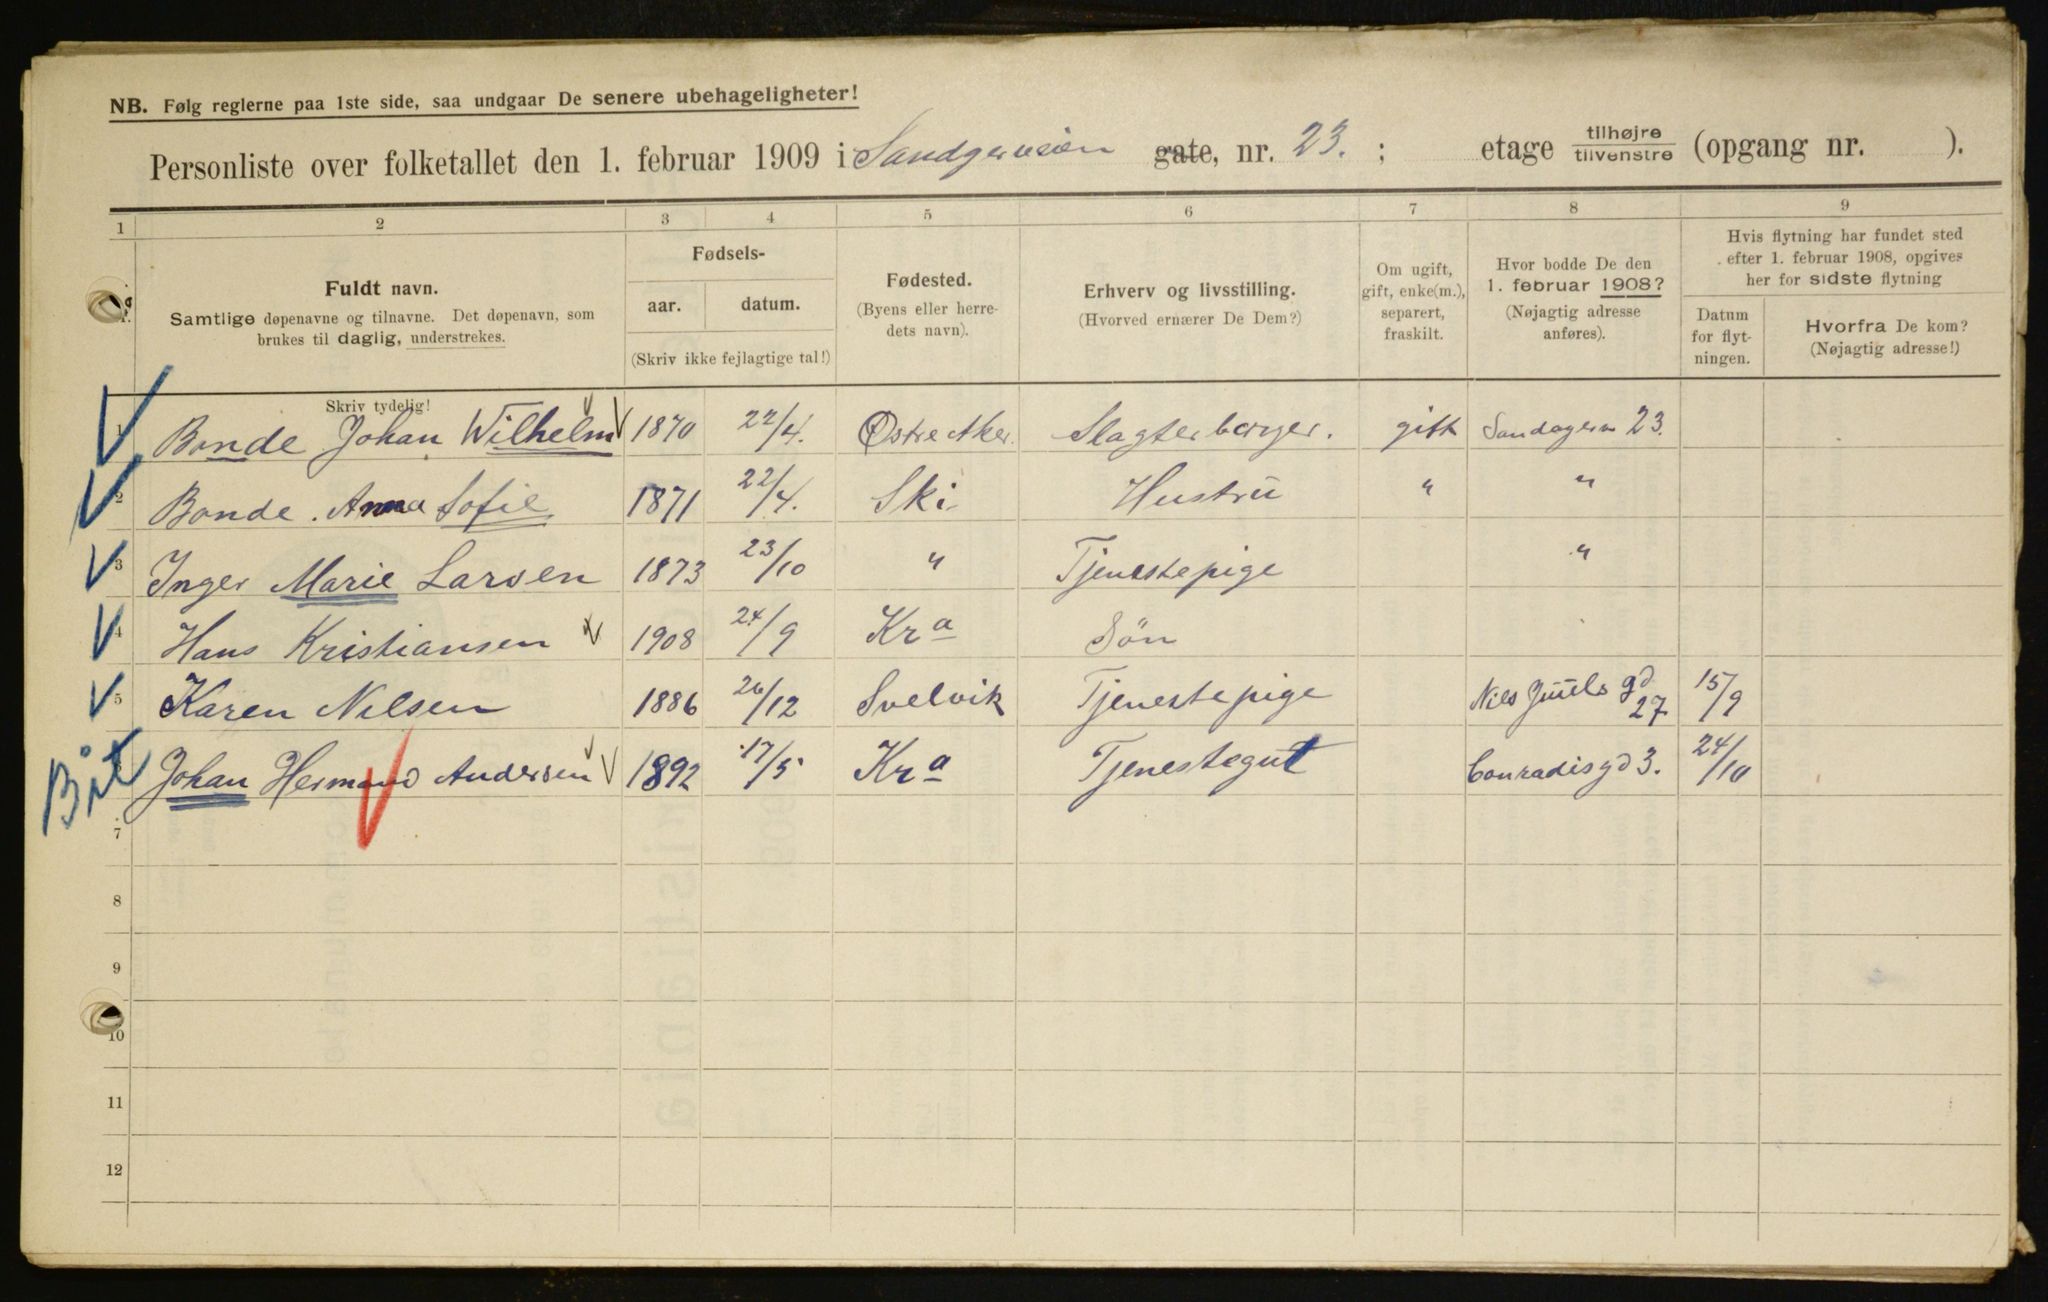 NB. Følg reglerne paa 1ste side, saa undgaar De senere ubehageligheter!
Personliste over folketallet den 1. februar 1909 i Sandgerveien gate, nr. 23. ; etage tilhøjre tilvenstre (opgang nr. ).
1 2 3 4 5 6 7 8 9
Fuldt navn.
Samtlige døpenavne og tilnavne. Det døpenavn, som
brukes til daglig, understrekes.
Skriv tydelig!
Fødsels-
aar. datum.
(Skriv ikke fejlagtige tal!)
Fødested.
(Byens eller herre-
dets navn).
Erhverv og livsstilling.
(Hvorved ernærer De Dem?)
Om ugift,
gift, enke(m.),
separert,
fraskilt.
Hvor bodde De den
1. februar 1908?
(Nøjagtig adresse
anføres).
Hvis flytning har fundet sted
efter 1. februar 1908, opgives
her for sidste flytning
Datum
for flyt-
ningen.
Hvorfra De kom?
(Nøjagtig adresse!)
1 Bonde Johan Wilhelm 1870 22/4. Østre Aker. Slagterborger. gift 23.
2 Bonde. Anna Sofie 1871 22/4. Ski Hustru " "
3 Inger Marie Larsen 1873 23/10 " Tjenestepige "
4 Hans Kristiansen 1908 24/9 Kra Søn
5 Karen Nilsen 1886 26/12 Svelvik Tjenestepige Nils Juuls gd 27 15/9
Johan Hermand Andersen 1892 17/5 Kra Tjenestegut Conradisgd 3. 24/10
7
8
9
10
11
12